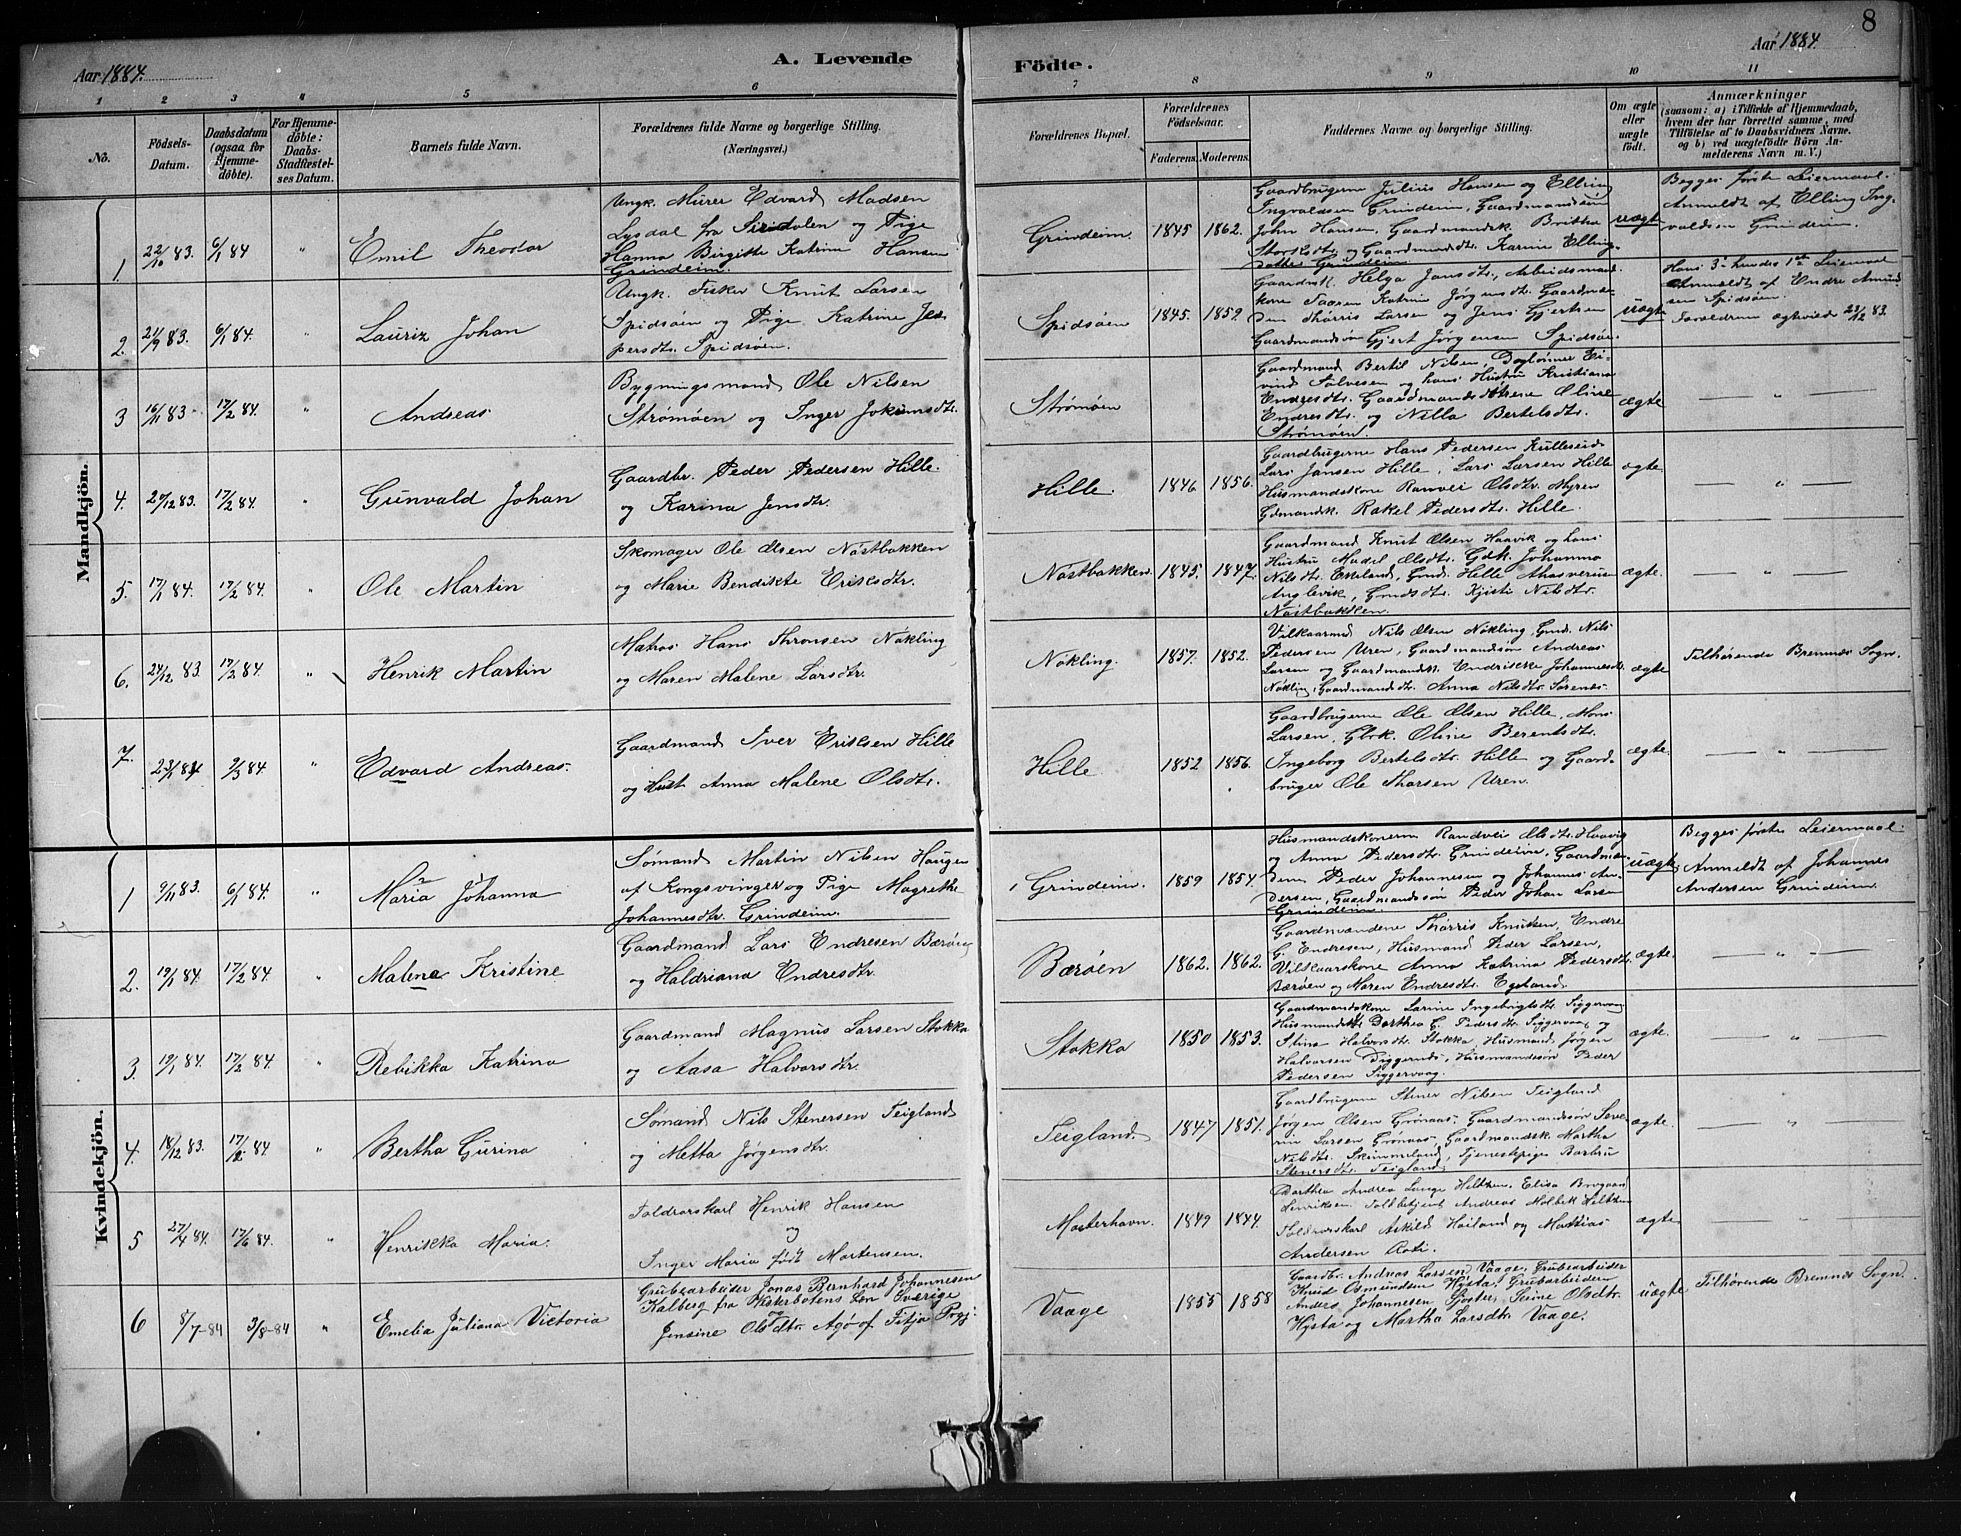 8
Aar 1884.
A. Levende
Födte.
Aar 1884.
1 2 3 4 5 6 7 8 9 10 11
No.
Födsels-
Datum.
Daabsdatum
(ogsaa for
Hjemme-
döbte).
For Hjemme-
döbte:
Daabs-
Stadfæstel-
ses Datum.
Barnets fulde Navn.
Forældrenes fulde Navne og borgerlige Stilling.
(Næringsvei.)
Forældrenes Bopæl.
Forældrenes
Födselsaar.
Faderens. Moderens.
Faddernes Navne og borgerlige Stilling.
Om ægte
eller
uægte
födt.
Anmærkninger
(saasom: a) i Tilfælde af Hjemmedaab,
hvem der har forrettet samme, med
Tilföielse af to Daabsvidners Navne.
og b) ved uægtefödte Börn An-
melderens Navn m. V.)
Mandkjön.
1. 22/10 83. 6/1 84 " Emil Theodor
Ungk. Murer Edvard Madsen
Lysdal fra Siredalen og Pige
Hanna Birgitte Katrine Hansen
Grindeim.
Grindeim. 1845 1862.
Gaardbrugerne Julius Hansen og Elling
Ingvaldsen Grindeim, Gaardmandssøn
John Hansen, Gaardmandsk. Britha
Storksdtr. og Gaardmandsdtr. Karine Elling-
datter Grindeim
uægte
Begges første Leiermaal.
Anmeldt af Elling Ing-
valdsen Grindeim.
2. 21/9 83. 6/1 84. " Lauriz Johan
Ungk. Fisker Knut Larsen
Spidsøen og Pige Katrine Jes-
persdtr. Spidsøen.
Spidsøen 1845. 1859.
Gaardmk. Helga Jansdtr., Arbeidsmand-
kone Taaren Katrine Jørgensdtr. Gaardmæn-
den Thorris Larsen og Jens Gjertsen
Gaardmandssøn Gjert Jørgensen Spidsøe
uægte
Hans 3' hendes 1st Leiermaal
Anmeldt af Endre Amund-
sen Spidsøen.
Forældrene ægteviede 28/12 83.
3 16/11 83 17/2 84. " Andreas
Bygningsmand Ole Nilsen
Strømøen og Inger Jokumsdtr.
Strømøen
Gaardmand Bertil Nilsen, Dagløner Ei-
vind Salvesen og hans Hustru Kristiana
Endresdtr. Gaardmandsdøtrene Oline
Endresdtr. og Nilla Bertelsdtr.
Strømøen.
ægte — " —
4. 27/12 83. 17/2 84. " Gunvald Johan
Gaardbr. Peder Pedersen Hille
og Karina Jensdtr.
Hille. 1846 1856.
Gaardbrugerne Hans Pedersen Kulleseid
Lars Jansen Hille, Lars Larsen Hille
Husmandskone Ranvei Olsdtr. Myren
Gdmandsk. Rakel Pedersdtr. Hille.
ægte — " —
5. 17/1 84. 17/2 84. " Ole Martin
Skomager Ole Olsen Nøstbakken
og Marie Bendikte Eriksdtr.
Nøstbakken. 1845. 1847.
Gaardmand Knut Olsen Haavik og hans
Hustru Madel Olsdtr. Gdk. Johanna
Nilsdtr. Ekeland, Gmd. Hille Ahasverus
Anglevik, Gmdsdtr. Kjisti Nilsdtr.
Nøstbakken.
ægte. — " —
6. 24/12 83 17/2 84. " Henrik Martin
Matros Hans Thronsen Nøkling
og Maren Malene Larsdtr.
Nøkling. 1857. 1852.
Vilkaarmd Nils Olsen Nøkling, Gmd. Nils
Pedersen Uren, Gaardmandssøn Andreas
Larsen og Gaardmandsk. Endrikke Johannesdtr.
Nøkling, Gaardmandsdtr. Anna Nilsdtr. Sørenes.
ægte Tilhørende Bremnes Sogn.
7. 23/1 84 9/3 84. " Edvard Andreas.
Gaardmand Iver Eriksen Hille
og Hust Anna Malene Olsdtr.
Hille 1852 1856.
Gaardbrugerne Ole Olsen Hille, Mons
Larsen, Gbrk. Oline Berentsdtr.
Ingeborg Bertelsdtr. Hille og Gaard-
bruger Ole Tharsen Uren.
ægte. — " —
Kvindekjön.
1 9/11 83. 6/1 84. " Maria Johanna
Sømand Martin Nilsen Haugen
af Kongsvinger og Pige Magrethe
Johannesdtr. Grindeim.
Grindeim. 1859 1854.
Husmandskonerne Randvei Olsdtr. Haavig
og Anna Pedersdtr. Grindeim, Gaardmæn-
dene Peder Johannesen og Johannes An-
dersen, Gaardmandssøn Peder Johan Larsen
Grindeim
uægte
Begges første Leiermaal.
Anmeldt af Johannes
Andersen Grindeim.
2. 19/1 84. 17/2 84. " Malena Kristine
Gaardmand Lars Endresen Bærøen
og Haldriana Endresdtr.
Bærøen 1862. 1862.
Gaardmændene Thorris Knutsen, Endre
G. Endresen, Husmand Peder Larsen,
Vilkaarskone Anna Katrina Pedersdtr.
Bærøen og Maren Endresdtr. Egeland.
ægte. — " —
3. 19/1 84. 17/2 84. " Rebikka Katrina
Gaardmand Magnus Larsen Stokka
og Aasa Halvorsdtr.
Stokka 1850 1853.
Gaardmandskone Larine Ingebrigtsdtr. Siggervaag
Husmandsk Dorthea G. Pedersdtr. Siggervaag og
Stina Halvorsdtr. Stokka, Husmand Jørgen
Halvorsen Diggernes, Husmandssøn Peder
Pedersen Siggervaag.
ægte. — " —
4. 18/12 83. 17/2 84 " Bertha Gurina
Sømand Nils Stenersen Teigland
og Metta Jørgensdtr.
Teigland 1847 1851.
Gaardbrugerne Stener Nilsen Teigland
Jørgen Olsen Grønaas, Gaardmandssøn Seve-
rin Larsen Grønaas, Gaardmandsk. Martha
Nilsdtr. Skimmeland, Tjenestepige Barbru
Stenersdtr. Teigland
ægte. — " —
5 27/4 84. 17/6 84. " Henrikka Maria.
Toldrorskarl Henrik Hansen
og
Inger Maria født Mortensen.
Mosterhavn. 1849 1844.
Dorthea Andrea Lange Hiltzen, Elisa
Henriksen. Toldbetjent Andreas Molbek Hiltzen
Toldrorskarl Askild Hailand og Mathias
Andersen
ægte — " —
6 8/7-84 3/8-84 " Emelia Juliana Victoria
Grubearbeider Jonas Bernhard Johannesen
Kalberg fra Westerbotens Len Sverige
og
Jensine Olsdtr. Agø af Fitja Prgj.
Vaage 1855 1858
Gaardbr. Andreas Larssen Vaage, Grubearbeider
Knud Osmundsen Hysta, Grubarbeiden
Anders Johannesen Sjøster, Seine Olsdtr.
Hysta og Martha Larsdtr. Vaage.
uægte Tilhørende Bremnes Sogn.